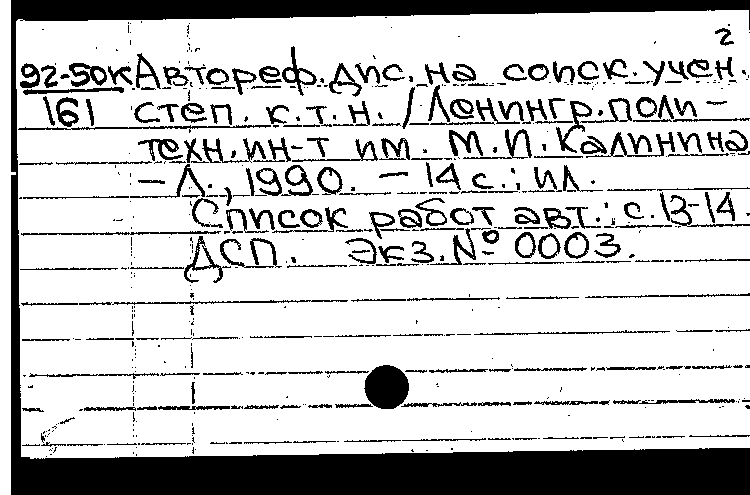 2
92-50к Автореф. дис. на соиск. учен.
161 степ. к.т.н. / Ленингр. поли-
техн. ин-т им. М.И. Калинина
– Л., 1990. – 14 с.: ил.
Список работ авт.: с. 13-14.
ДСП. Экз. № 0003.